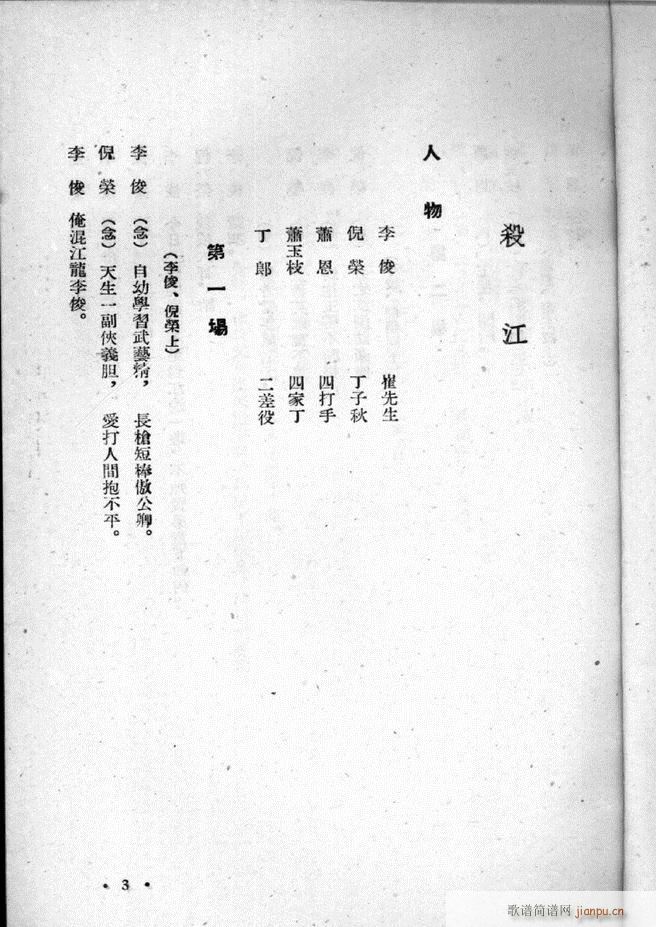 殺江
人物
李俊 崔先生
倪榮 丁子秋
蕭恩 四打手
蕭玉枝 四家丁
丁郎 二差役
第一場
（李俊、倪榮上）
李俊（念）自幼學習武藝精，長槍短棒傲公卿。
倪榮（念）天生一副俠義胆，愛打人間抱不平。
李俊 俺混江龍李俊。
• 3 •
歌谱简谱网 jianpu.cn